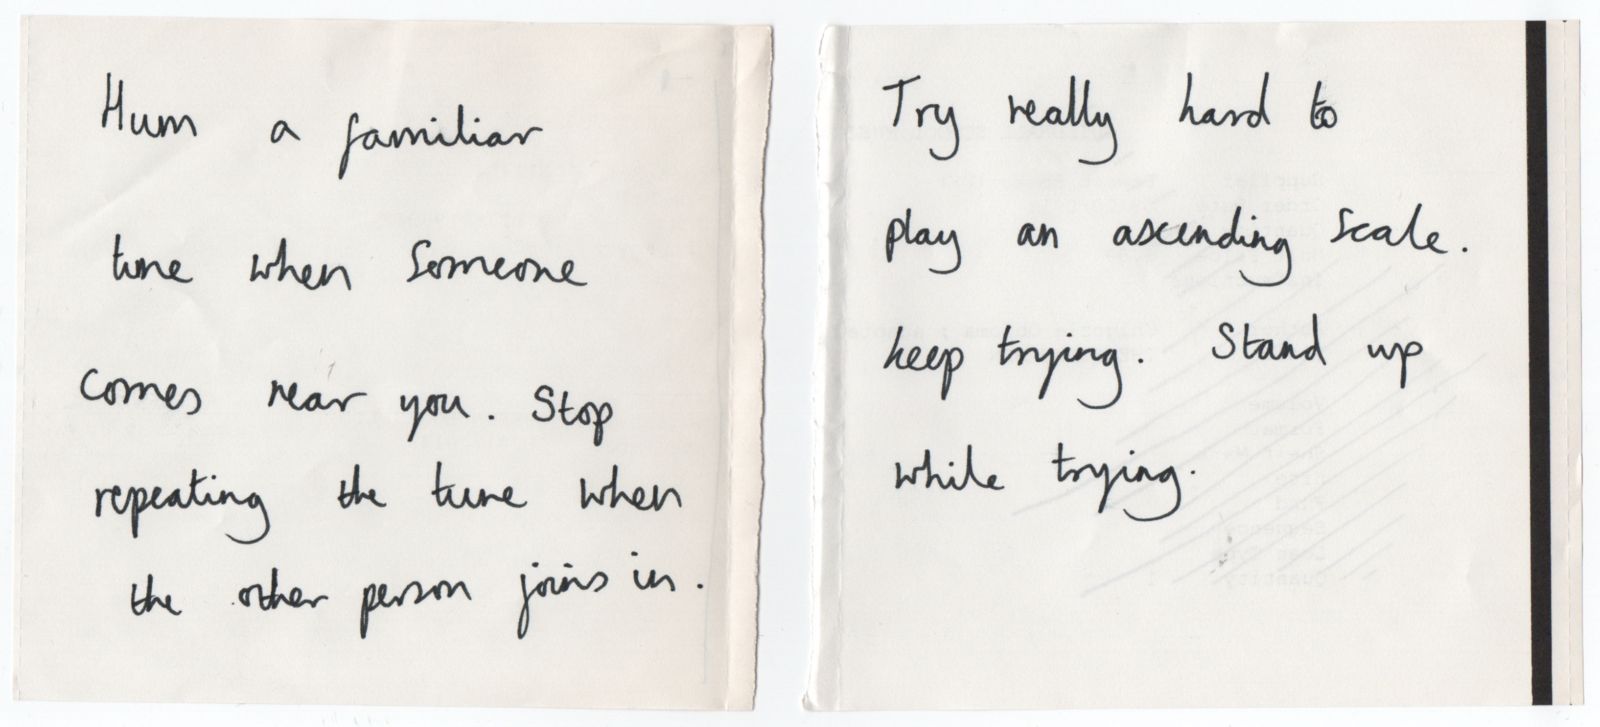 Hum a familiar
tune when someone
comes near you. Stop
repeating the tune when
the other person joins in.
Try really hard to
play an ascending scale.
keep trying. Stand up
while trying.